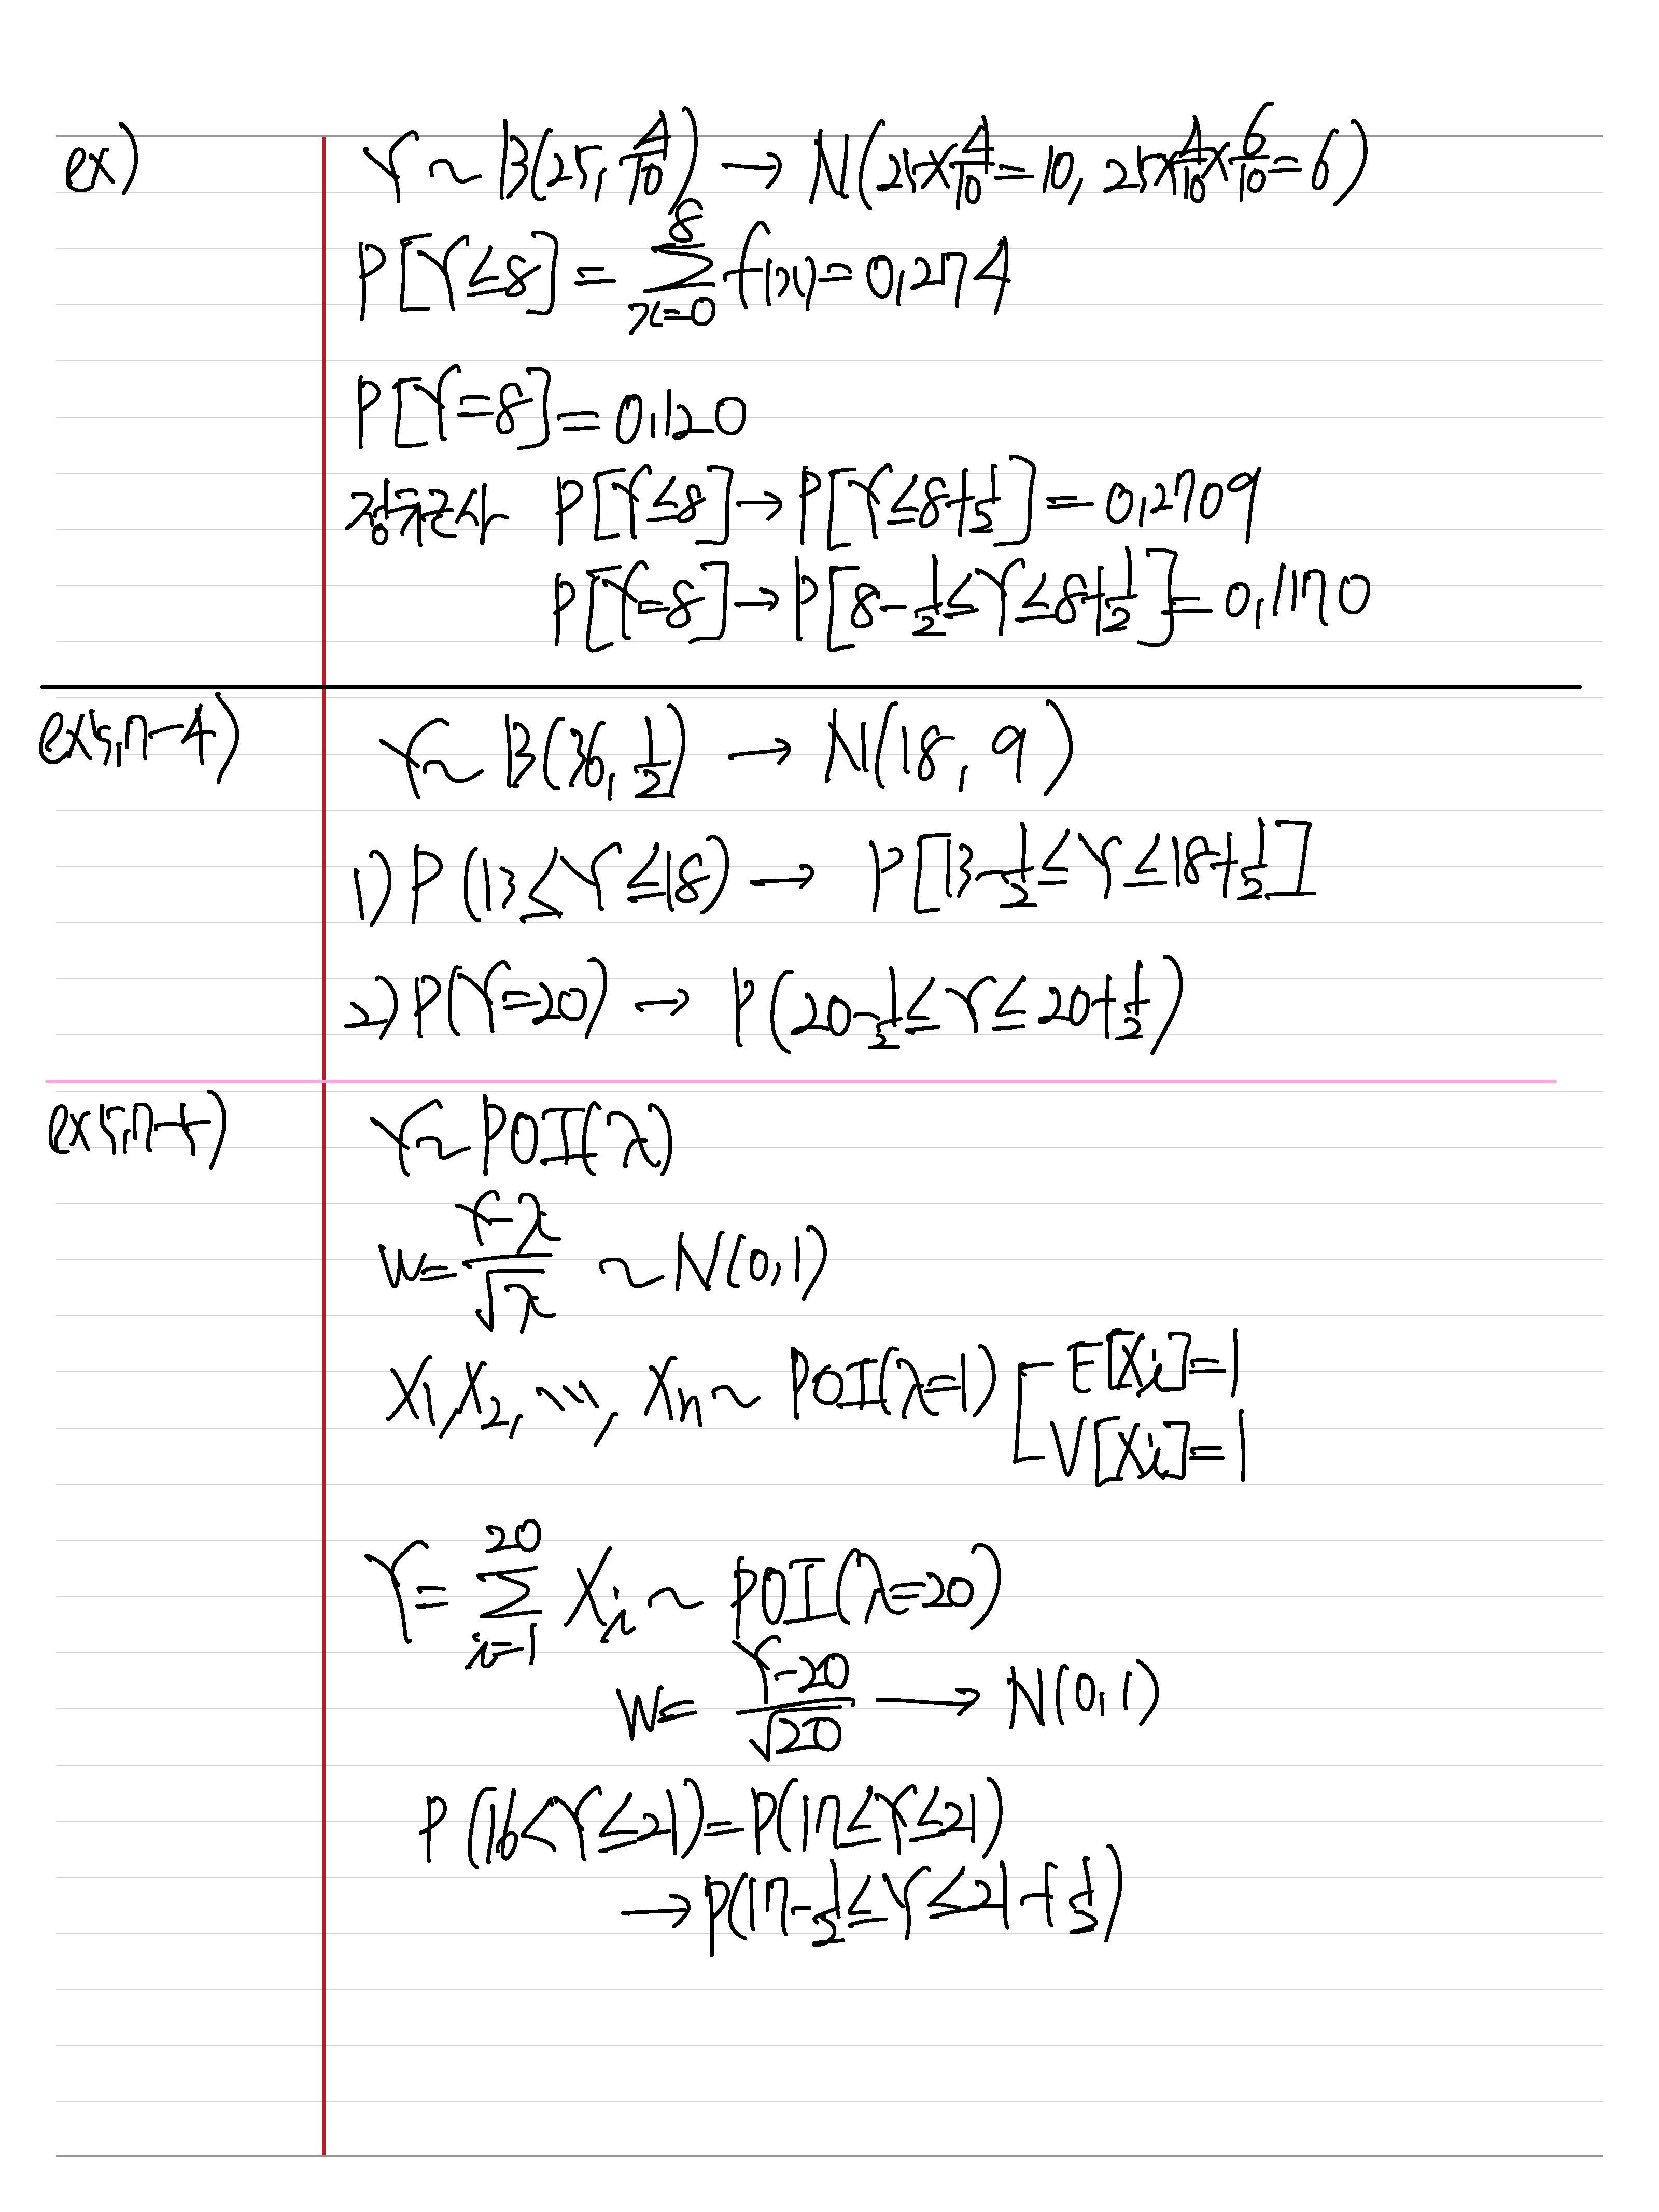 ex) Y ~ B(25, 4/10) → N(25×4/10=10, 25×4/10×6/10=6)
P[Y≤8] = ∑_{x=0}^{8} f(x) = 0.274
P[Y=8] = 0.120
정규근사 P[Y≤8] → P[Y≤8+1/2] = 0.2709
P[Y=8] → P[8-1/2≤Y≤8+1/2] = 0.1170
ex5.7-4) Y ~ B(36, 1/2) → N(18, 9)
1) P(13≤Y≤18) → P[13-1/2≤Y≤18+1/2]
2) P(Y=20) → P(20-1/2≤Y≤20+1/2)
ex5.7-5) Y ~ POI(λ)
W = (Y-λ)/√λ ~ N(0,1)
X1, X2, ..., Xn ~ POI(λ=1) [ E[Xi]=1
V[Xi]=1
Y = ∑_{i=1}^{20} Xi ~ POI(λ=20)
W = (Y-20)/√20 → N(0,1)
P(16<Y≤21) = P(17≤Y≤21)
→ P(17-1/2≤Y≤21+1/2)